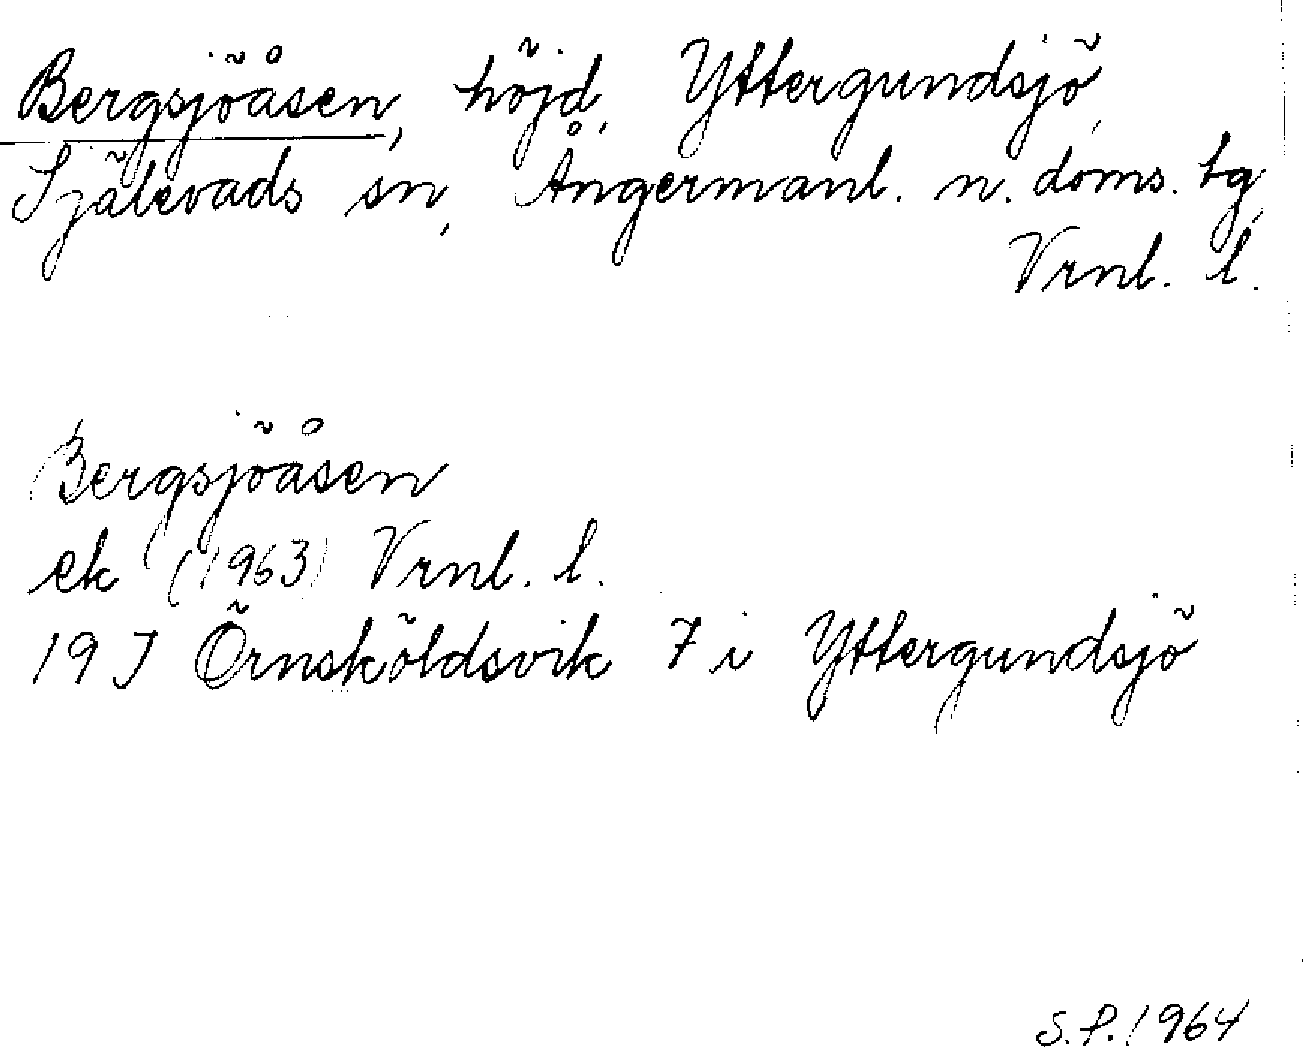 Bergsjöåsen, höjd, Yttergundsjö,
Själevads sn, Ångermanl. n. doms. tg,
Vrnl. l.
Bergsjöåsen
ek (1963) Vrnl. l.
19 J Örnsköldsvik 7 i Yttergundsjö
S.P. 1964